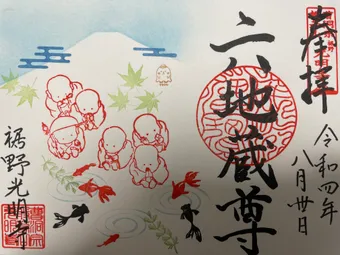 奉拝
令和四年
八月卅日
六地蔵尊
裾野光明寺